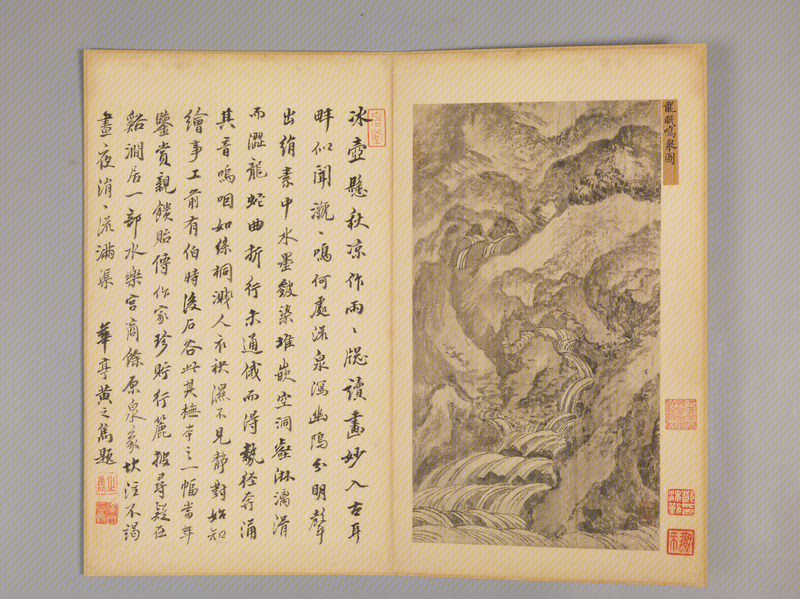 龍眠鳴泉圖
冰壺懸秋凉作雨〻牕讀畫妙入古耳
畔似聞〻鳴何處流泉瀉幽隝分明聲
出絹素中水墨皴染堆嵌空洞壑淋漓滑
而澀龍蛇曲折行未通俄而得勢徑奔涌
其音嗚咽如絲桐濺人衣袂濕不見靜對始知
繪事工前有伯時後石谷此其橅本之一幅當年
鑒賞親饋貽傳作家珍貯行簏披尋疑在
谿澗居一部水樂宮商餘原泉蒙坎注不竭
晝夜涓〻流滿渠 華亭黃之雋題